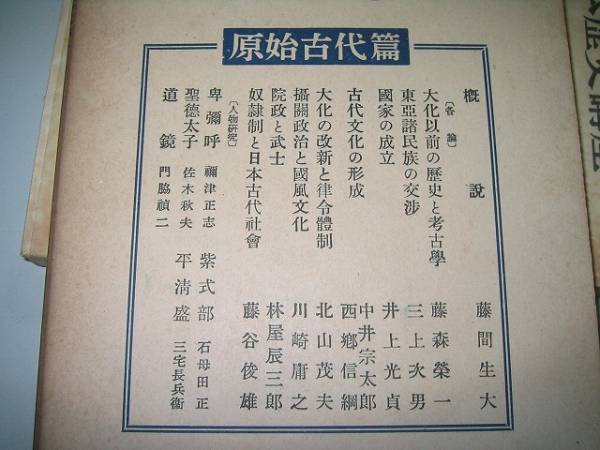 原始古代篇
概説 藤間生大
〔各論〕
大化以前の歴史と考古學 藤森榮一
東亞諸民族の交渉 三上次男
國家の成立 井上光貞
古代文化の形成 中井宗太郎
西鄕信綱
大化の改新と律令體制 北山茂夫
攝關政治と國風文化 川崎庸之
院政と武士 林屋辰三郎
奴隷制と日本古代社會 藤谷俊雄
〔人物硏究〕
卑彌呼 禰津正志 紫式部 石母田正
聖德太子 佐木秋夫 平淸盛 三宅長兵衞
道鏡 門脇禎二